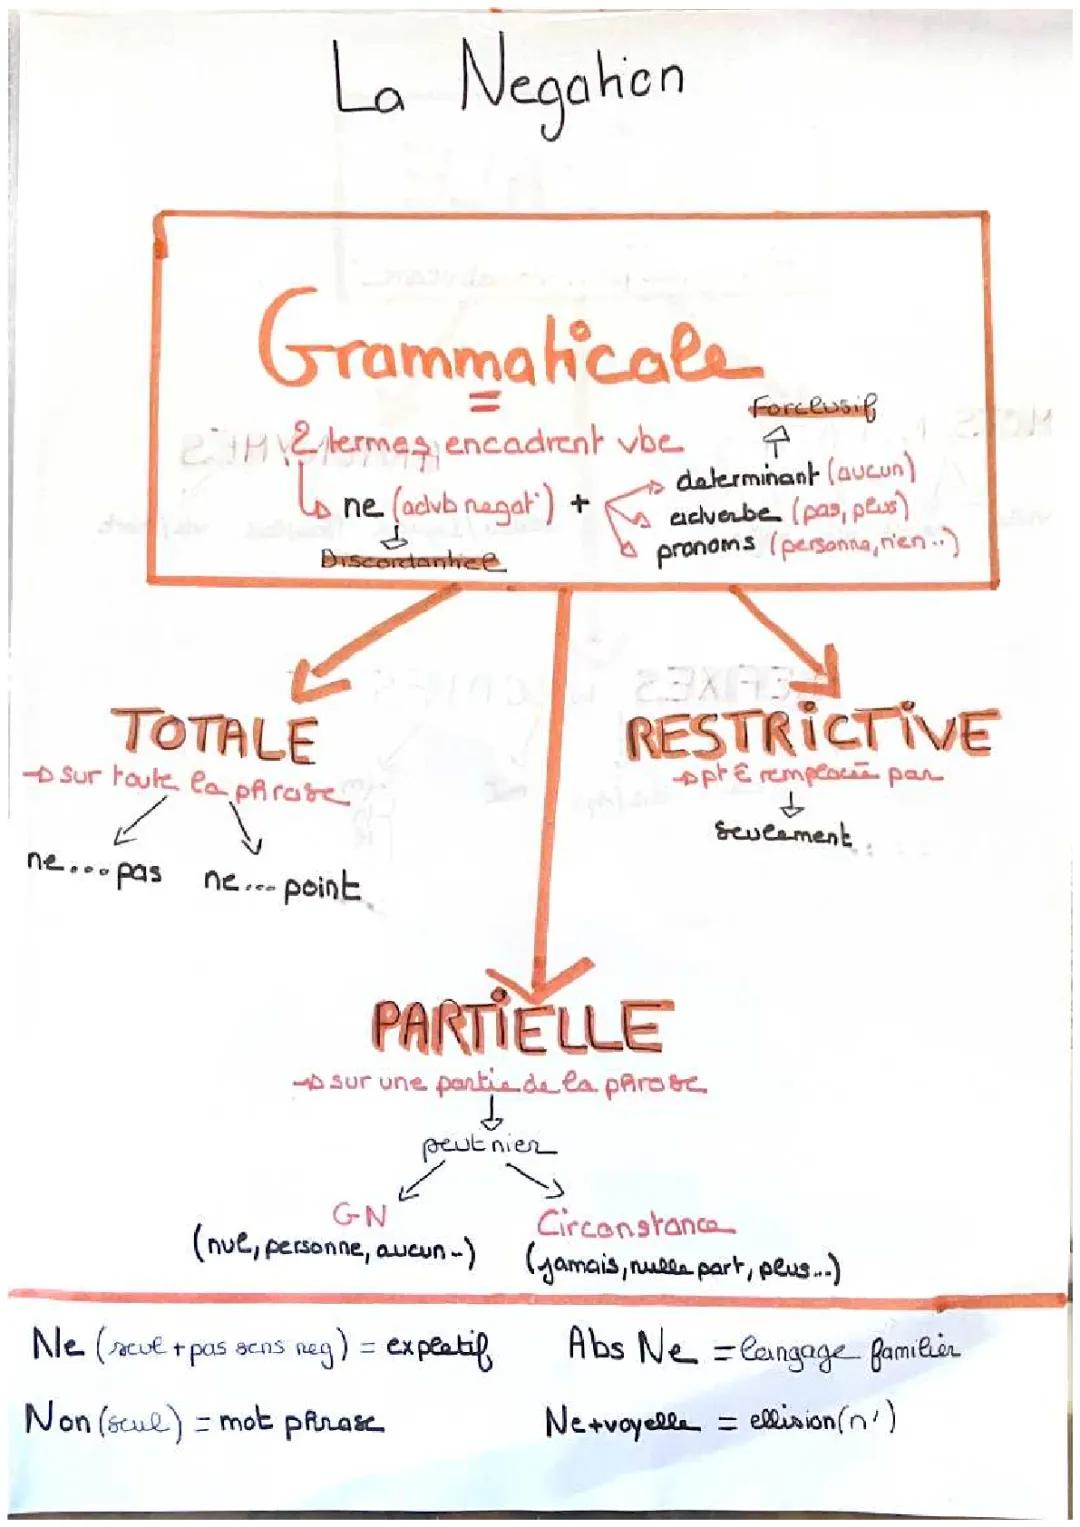 La Negation
Grammaticale
=
Forclusif
2 termes encadrent vbe
determinant (aucun)
ne (advb negat°) +
adverbe (pas, plus)
pronoms (personne, rien..)
Discordantiel
TOTALE
RESTRiCTiVE
sur toute la phrase
pt ê remplacée par
seulement
ne....pas ne....point
PARTiELLE
sur une partie de la phrase
peut nier
GN
Circonstance
(nul, personne, aucun..)
(jamais, nulle part, plus...)
Ne (seul + pas sens neg) = expletif
Abs Ne = langage familier
Non (seul) = mot phrase
Ne+voyelle = ellision (n')